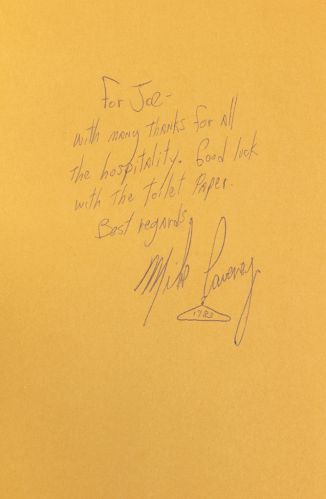 For Joe-
with many thanks for all
the hospitality. Good luck
with the Toilet Paper.
Best regards,
Mike Caveney